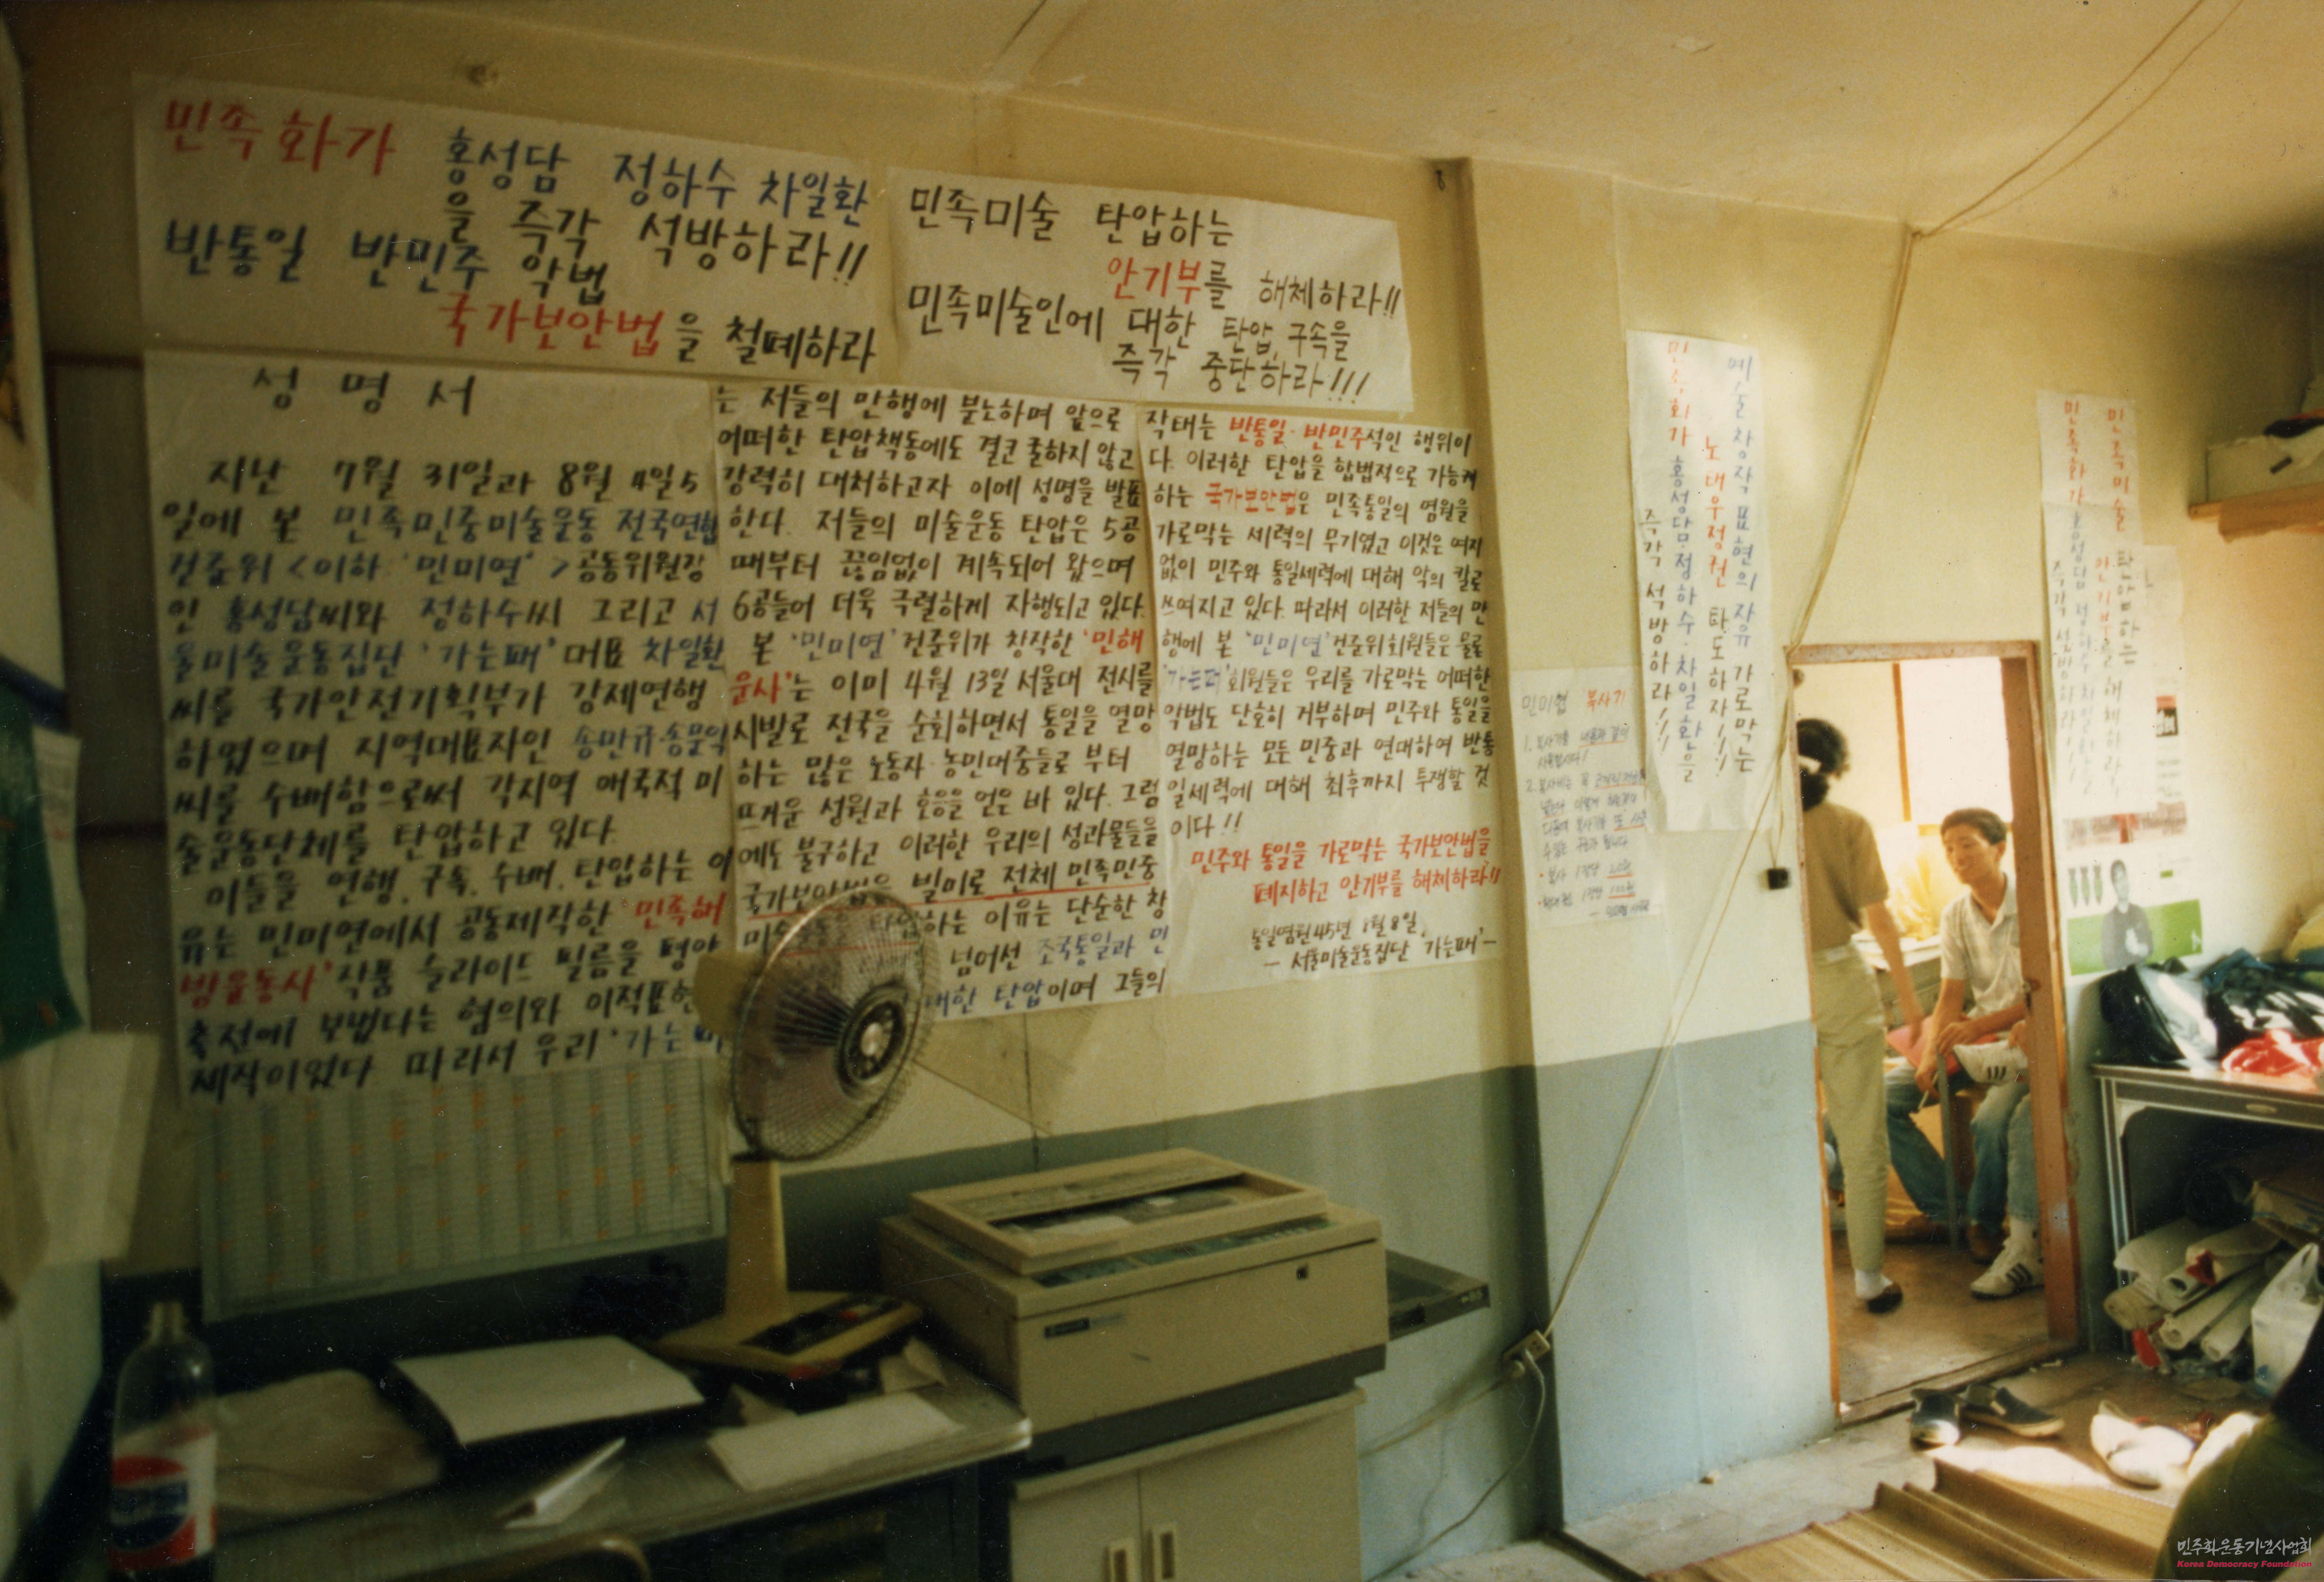 민족화가 홍성담 정하수 차일환
을 즉각 석방하라!!
반통일 반민주 악법
국가보안법을 철폐하라
민족미술 탄압하는
안기부를 해체하라!!
민족미술인에 대한 탄압, 구속을
즉각 중단하라!!!
성명서
지난 7월 31일과 8월 4일 5
일에 본 민족민중미술운동 전국연합
건준위 <이하 '민미연'> 공동위원장
인 홍성담씨와 정하수씨 그리고 서
울미술운동집단 '가는패' 대표 차일환
씨를 국가안전기획부가 강제연행
하였으며 지역대표자인 송만규·송문익
씨를 수배함으로써 각지역 애국적 미
술운동단체를 탄압하고 있다.
이들을 연행, 구속, 수배, 탄압하는 이
유는 민미연에서 공동제작한 '민족해
방운동사' 작품 슬라이드 필름을 평양
축전에 보냈다는 혐의와 이적표현
제작이었다. 따라서 우리 '가는패
는 저들의 만행에 분노하며 앞으로
어떠한 탄압책동에도 결코 굴하지 않고
강력히 대처하고자 이에 성명을 발표
한다. 저들의 미술운동 탄압은 5공
때부터 끊임없이 계속되어 왔으며
6공들어 더욱 극렬하게 자행되고 있다.
본 '민미연' 건준위가 창작한 '민해
운사'는 이미 4월 13일 서울대 전시를
시발로 전국을 순회하면서 통일을 열망
하는 많은 노동자·농민대중들로 부터
뜨거운 성원과 호응을 얻은 바 있다. 그럼
에도 불구하고 이러한 우리의 성과물들을
국가보안법을 빌미로 전체 민족민중
미술운동을 탄압하는 이유는 단순한 창
넘어선 조국통일과 민
대한 탄압이며 그들의
작태는 반통일·반민주적인 행위이
다. 이러한 탄압을 합법적으로 가능케
하는 국가보안법은 민족통일의 염원을
가로막는 세력의 무기였고 이것은 여지
없이 민주와 통일세력에 대해 악의 칼로
쓰여지고 있다. 따라서 이러한 저들의 만
행에 본 '민미연' 건준위회원들은 물론
'가는패' 회원들은 우리를 가로막는 어떠한
악법도 단호히 거부하며 민주와 통일을
열망하는 모든 민중과 연대하여 반통
일세력에 대해 최후까지 투쟁할 것
이다!!
민주와 통일을 가로막는 국가보안법을
폐지하고 안기부를 해체하라!!
통일염원 45년 8월 8일,
- 서울미술운동집단 '가는패' -
민미협 복사기
예술창작 표현의 자유 가로막는
노태우정권 타도하자!!!
민족화가 홍성담·정하수·차일환을
즉각 석방하라!!!
민족미술 탄압하는
안기부를 해체하라
민족화가 홍성담 정하수 차일환을
즉각 석방하라!!!
민주화운동기념사업회
Korea Democracy Foundation